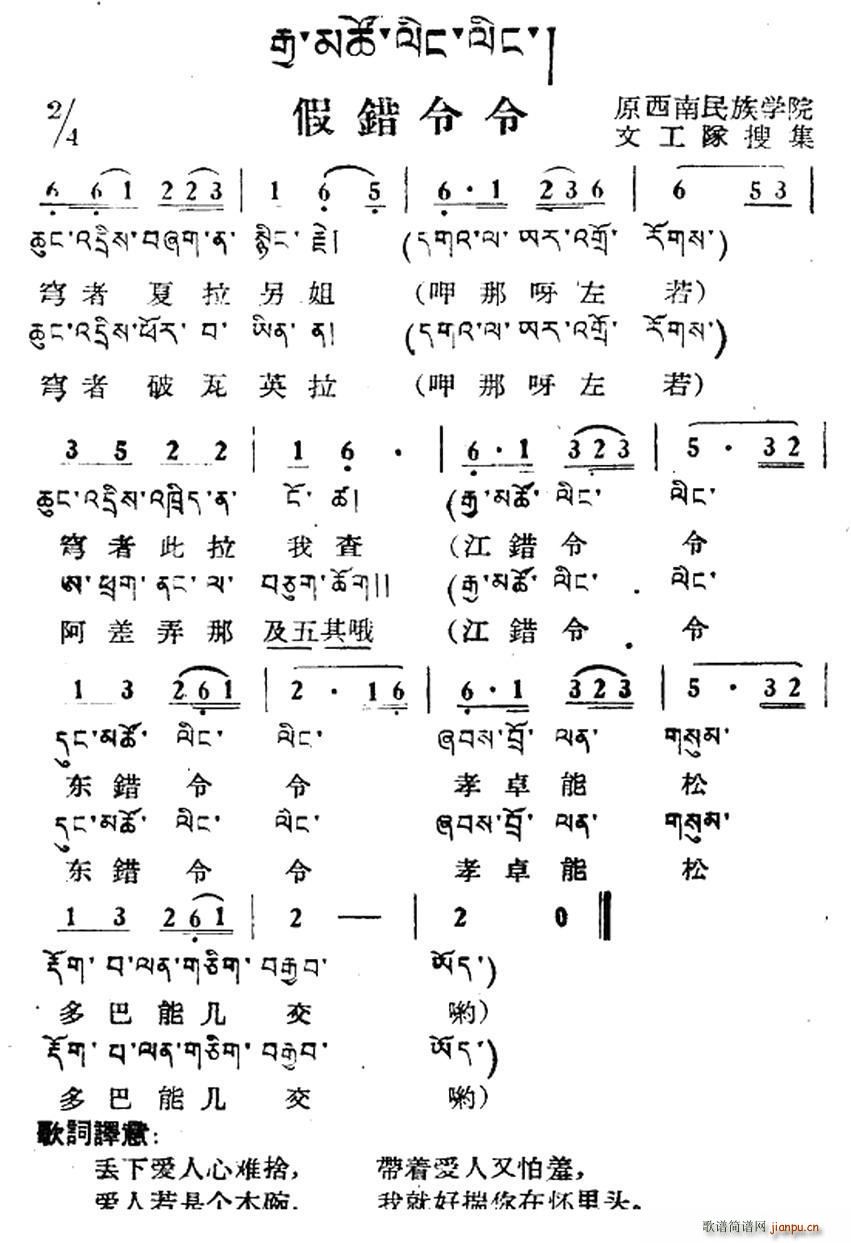 རྒྱ་མཚོ་ལིང་ལིང་།
2/4 假錯令令 原西南民族学院
文工隊搜集
6 6 1 2 2 3 | 1 6 5 | 6 · 1 2 3 6 | 6 5 3 |
ཆུང་འདྲིས་བཞག་ན་ སྙིང་རྗེ། (དགའ་ལ་ ཨར་འགྲོ་ རོགས་)
穹者 夏拉另姐 (呷那呀左 若)
ཆུང་འདྲིས་ཕོར་ བ་ ཡིན་ ན། (དགའ་ལ་ ཨར་འགྲོ་ རོགས་)
穹者 破瓦英拉 (呷那呀左 若)
3 5 2 2 | 1 6 · | 6 · 1 3 2 3 | 5 · 3 2 |
ཆུང་འདྲིས་འཁྲིད་ན་ ངོ་ ཚ། (རྒྱ་མཚོ་ ལིང་ ལིང་
穹者此拉 我查 (江錯令 令
ཨ་ཕྲག་ནང་ལ་ བཅུག་ཆོག།། (རྒྱ་མཚོ་ ལིང་ ལིང་
阿差弄那 及五其哦 (江錯令 令
1 3 2 6 1 | 2 · 1 6 | 6 · 1 3 2 3 | 5 · 3 2 |
དུང་མཚོ་ ལིང་ ལིང་ ཞབས་བྲོ་ ལན་ གསུམ་
东錯令 令 孝卓能 松
དུང་མཚོ་ ལིང་ ལིང་ ཞབས་བྲོ་ ལན་ གསུམ་
东錯令 令 孝卓能 松
1 3 2 6 1 | 2 — | 2 0 ‖
རྡོག་ པ་ལན་གཅིག་ བརྒྱབ་ ཨོད་)
多巴能几 交 喲)
རྡོག་ པ་ལན་གཅིག་ བརྒྱབ་ ཨོད་)
多巴能几 交 喲)
歌詞譯意:
丢下爱人心难捨, 帶着愛人又怕羞,
爱人若是个木碗, 我就好揣你在怀里头。
歌谱简谱网 jianpu.cn